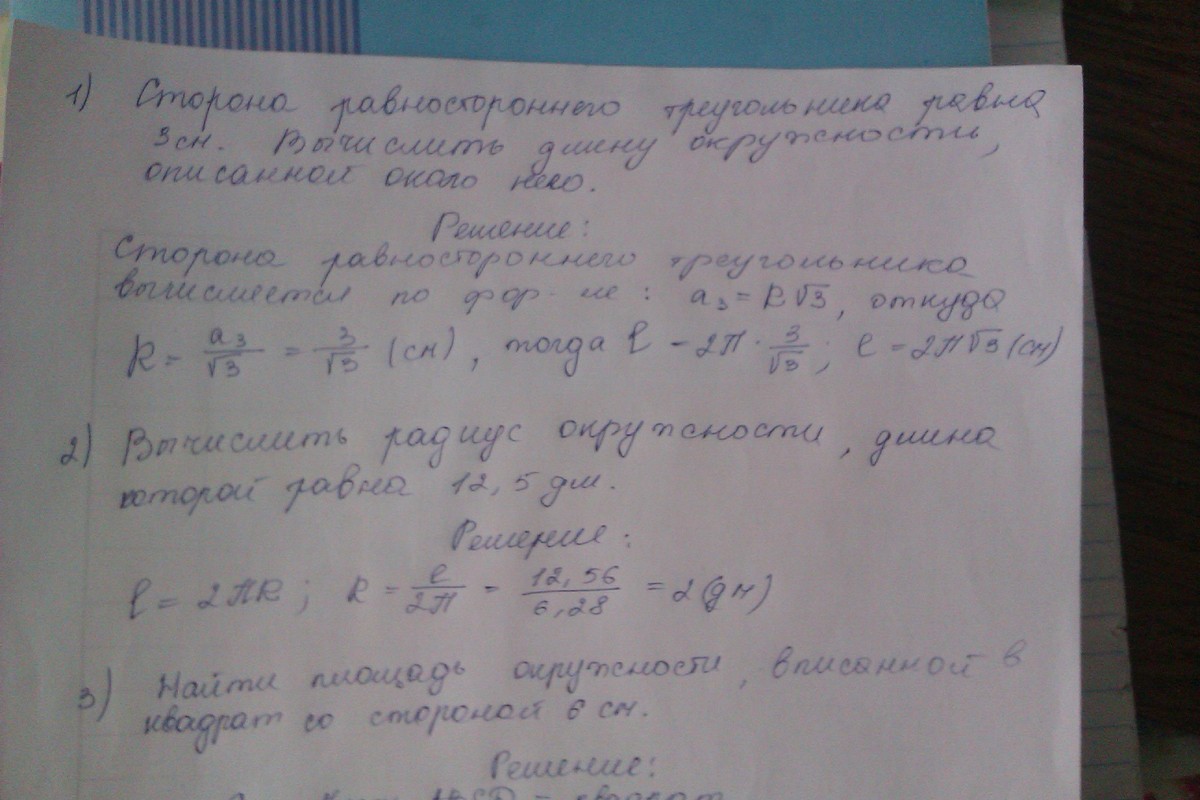 1) Сторона равностороннего треугольника равна
3 см. Вычислить длину окружности,
описанной около него.
Решение:
Сторона равностороннего треугольника
вычисляется по фор-ле: a₃ = R√3, откуда
R = a₃/√3 = 3/√3 (см), тогда l = 2π · 3/√3; l = 2π√3 (см)
2) Вычислить радиус окружности, длина
которой равна 12,5 дм.
Решение:
l = 2πR; R = l/2π = 12,56/6,28 = 2 (дм)
3) Найти площадь окружности, вписанной в
квадрат со стороной 6 см.
Решение:
ABCD – квадрат